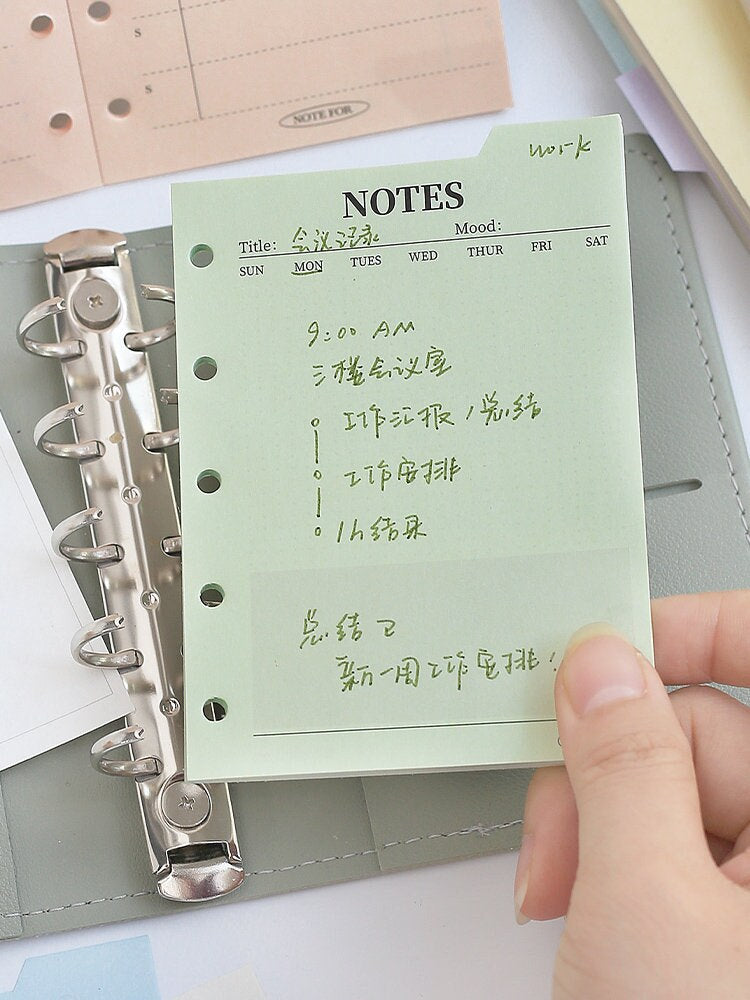 S
S
NOTE FOR
work
NOTES
Title: 会议记录 Mood:
SUN MON TUES WED THUR FRI SAT
9:00 AM
三楼会议室
工作汇报/总结
工作安排
1h结束
总结了
新一周工作安排!